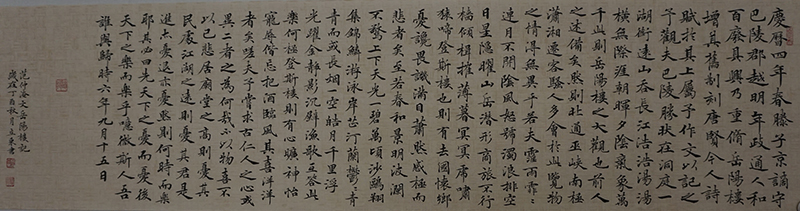 慶曆四年春滕子京謫守
巴陵郡越明年政通人和
百廢具興乃重脩岳陽樓
增其舊制刻唐賢今人詩
賦於其上屬予作文以記之
予觀夫巴陵勝狀在洞庭一
湖銜遠山吞長江浩浩湯湯
橫無際涯朝暉夕陰氣象萬
千此則岳陽樓之大觀也前人
之述備矣然則北通巫峽南極
瀟湘遷客騷人多會於此覽物
之情得無異乎若夫霪雨霏霏
連月不開陰風怒號濁浪排空
日星隱曜山岳潛形商旅不行
檣傾楫摧薄暮冥冥虎嘯
猿啼登斯樓也則有去國懷鄉
憂讒畏譏滿目蕭然感極而
悲者矣至若春和景明波瀾
不驚上下天光一碧萬頃沙鷗翔
集錦鱗游泳岸芷汀蘭鬱鬱青
青而或長烟一空皓月千里浮
光耀金靜影沉璧漁歌互答此
樂何極登斯樓則有心曠神怡
寵辱偕忘把酒臨風其喜洋洋
者矣嗟夫予嘗求古仁人之心或
異二者之為何哉不以物喜不
以己悲居廟堂之高則憂其
民處江湖之遠則憂其君是
進亦憂退亦憂然則何時而樂
耶其必曰先天下之憂而憂後
天下之樂而樂乎噫微斯人吾
誰與歸時六年九月十五日
范仲淹文岳陽樓記
歲在丁酉秋月東書